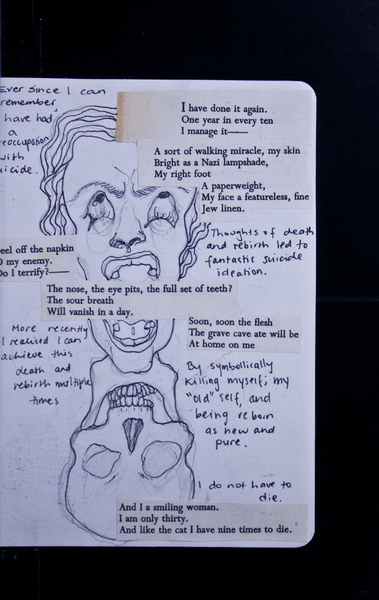 Ever since I can
remember,
have had
a
preoccupation
with
suicide.
I have done it again.
One year in every ten
I manage it——
A sort of walking miracle, my skin
Bright as a Nazi lampshade,
My right foot
A paperweight,
My face a featureless, fine
Jew linen.
Peel off the napkin
O my enemy.
Do I terrify?——
Thoughts of death
and rebirth led to
fantastic suicide
ideation.
The nose, the eye pits, the full set of teeth?
The sour breath
Will vanish in a day.
Soon, soon the flesh
The grave cave ate will be
At home on me
More recently
I realised I can
achieve this
death and
rebirth multiple
times
By symbollically
killing myself; my
"old" self, and
being reborn
as new and
pure.
I do not have to
die.
And I a smiling woman.
I am only thirty.
And like the cat I have nine times to die.